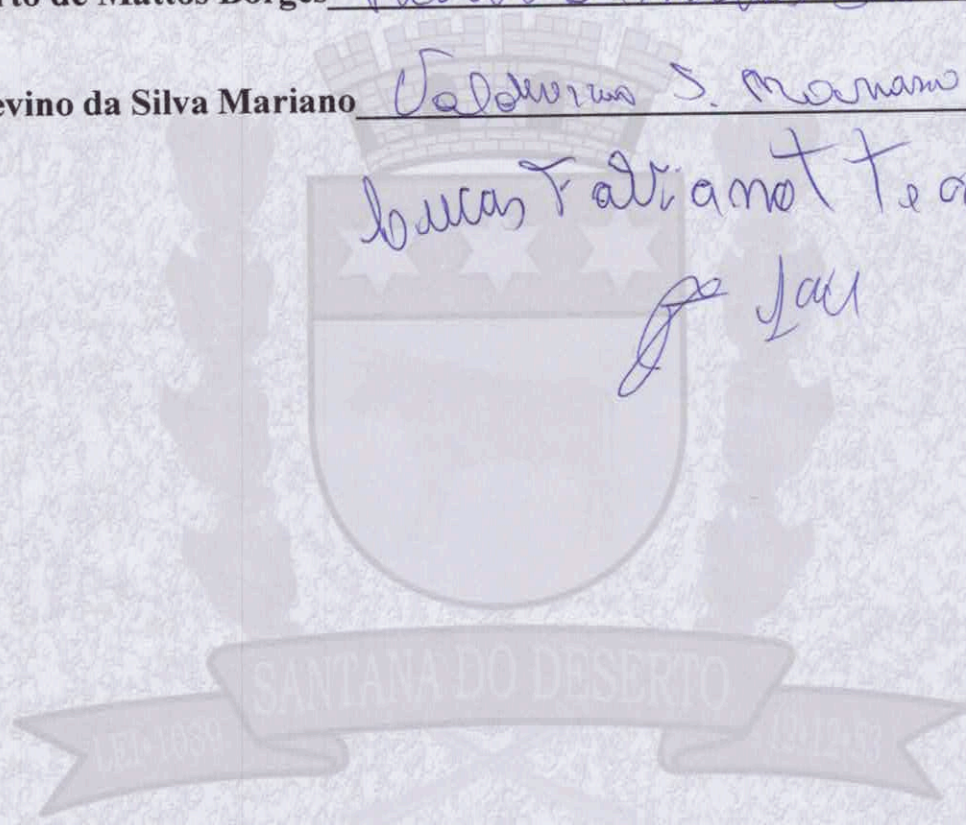 rto de Mattos Borges
evino da Silva Mariano Valdevino S. Mariano
Lucas Fabiano
SANTANA DO DESERTO
LEI•1039 12•12•53